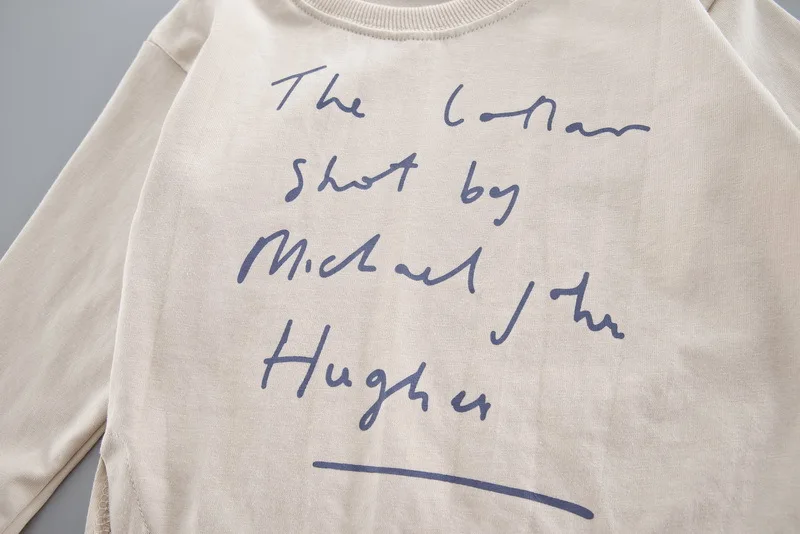 The Collar
Shot by
Michael John
Hughes